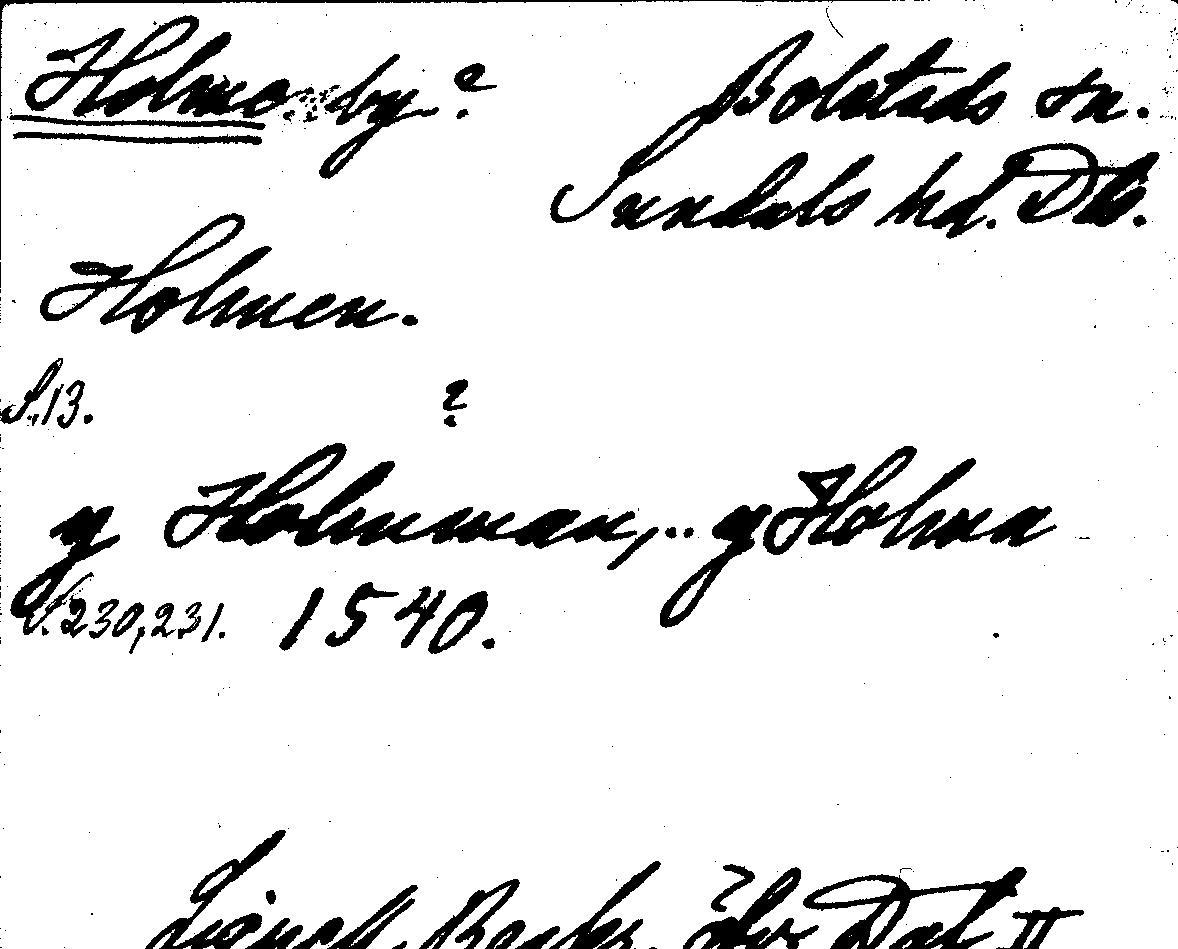 Holmen by? Bolstads sn.
Sundals hd. Dls.
Holmen.
S. 13. ?
y Holmman, .. y Holma
S. 230, 231. 1540.
Lignell, Beskr. öfv. Dal II